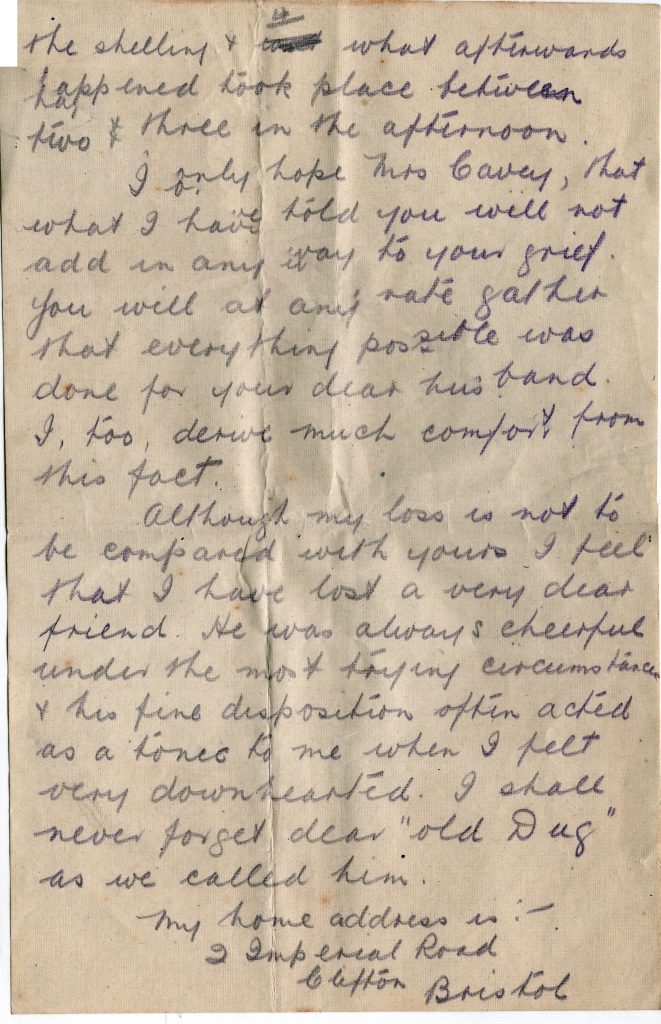 the shelling & what afterwards
happened took place between
two & three in the afternoon.
I only hope Mrs Cavey, that
what I have told you will not
add in any way to your grief.
You will at any rate gather
that everything possible was
done for your dear husband.
I, too, derive much comfort from
this fact.
Although my loss is not to
be compared with yours I feel
that I have lost a very dear
friend. He was always cheerful
under the most trying circumstances
& his fine disposition often acted
as a tonic to me when I felt
very downhearted. I shall
never forget dear "old Dug"
as we called him.
My home address is :-
2 Imperial Road
Clifton Bristol